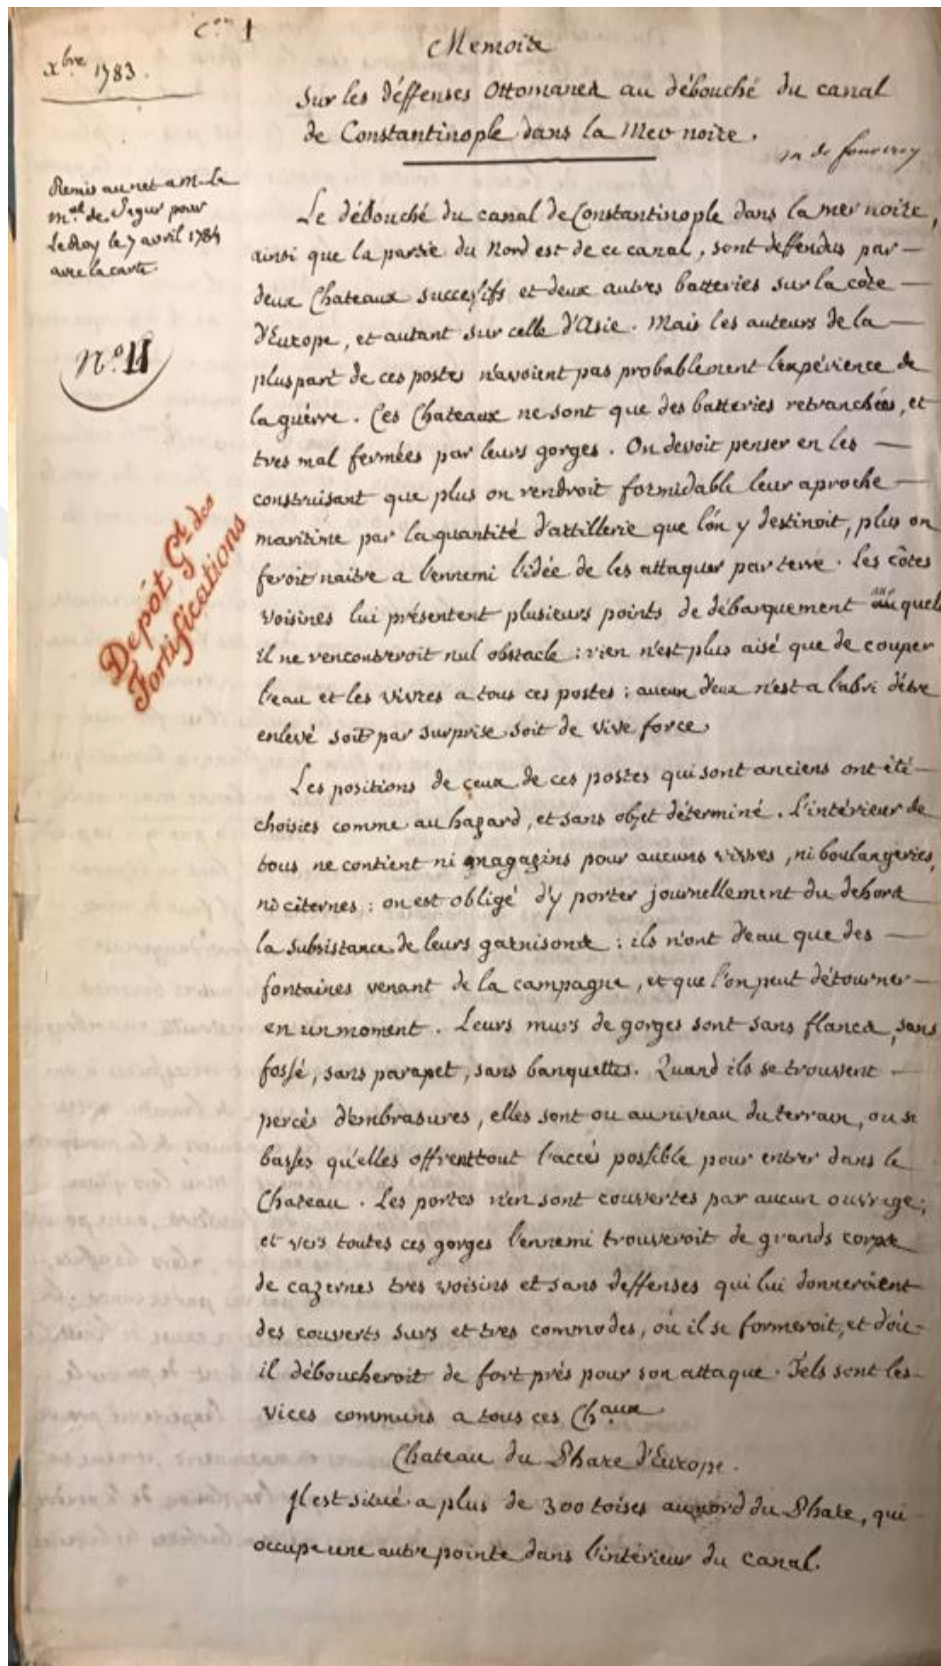 Con 1
Xbre 1783.
Memoire
Sur les déffenses Ottomanes au débouché du canal
de Constantinople dans la Mer noire.
Remis au net a M. Le
Mal. de Segur pour
Le Roy le 7 avril 1784
avec la carte.
N.o 11
Depôt Gal des
Fortifications
Le débouché du canal de Constantinople dans la mer noire,
ainsi que la partie du Nord est de ce canal, sont deffendus par
deux Chateaux successifs et deux autres batteries sur la côte
d'Europe, et autant sur celle d'Asie. Mais les auteurs de la
pluspart de ces postes n'avoient pas probablement l'expérience de
la guérre. Ces Chateaux ne sont que des batteries retranchées, et
tres mal fermées par leurs gorges. On devoit penser en les
construisant que plus on rendroit formidable leur aproche
maritime par la quantité d'attillerie que l'on y destinoit, plus on
feroit naitre a l'ennemi l'idée de les attaquer par terre. Les côtes
voisines lui présentent plusieurs points de débarquement auquels
il ne rencontreroit nul obstacle : rien n'est plus aisé que de couper
l'eau et les vivres a tous ces postes ; aucun d'eux n'est a l'abri d'être
enlevé soit par surprise soit de vive force.
Les positions de ceux de ces postes qui sont anciens ont été
choisies comme au hazard, et sans objet déterminé. L'intérieur de
tous ne contient ni magazins pour aucuns vivres, ni boulangeries,
ni citernes : on est obligé d'y porter journellement du dehors
la subsistance de leurs garnisons : ils n'ont d'eau que des
fontaines venant de la campagne, et que l'on peut détourner
en un moment. Leurs murs de gorges sont sans flancs, sans
fossé, sans parapet, sans banquettes. Quand ils se trouvent
percés d'embrasures, elles sont ou au niveau du terrain, ou si
basses qu'elles offrent tout l'accès possible pour entrer dans le
Chateau. Les portes n'en sont couvertes par aucun ouvrage;
et vers toutes ces gorges l'ennemi trouveroit de grands corps
de cazernes tres voisins et sans deffenses qui lui donneroient
des couverts surs et tres commodes, où il se formeroit, et d'où
il déboucheroit de fort près pour son attaque. Tels sont les
vices communs a tous ces Chaux
Chateau du Phare d'Europe.
Il est situé a plus de 300 toises au nord du Phare, qui
occupe une autre pointe dans l'intérieur du canal.